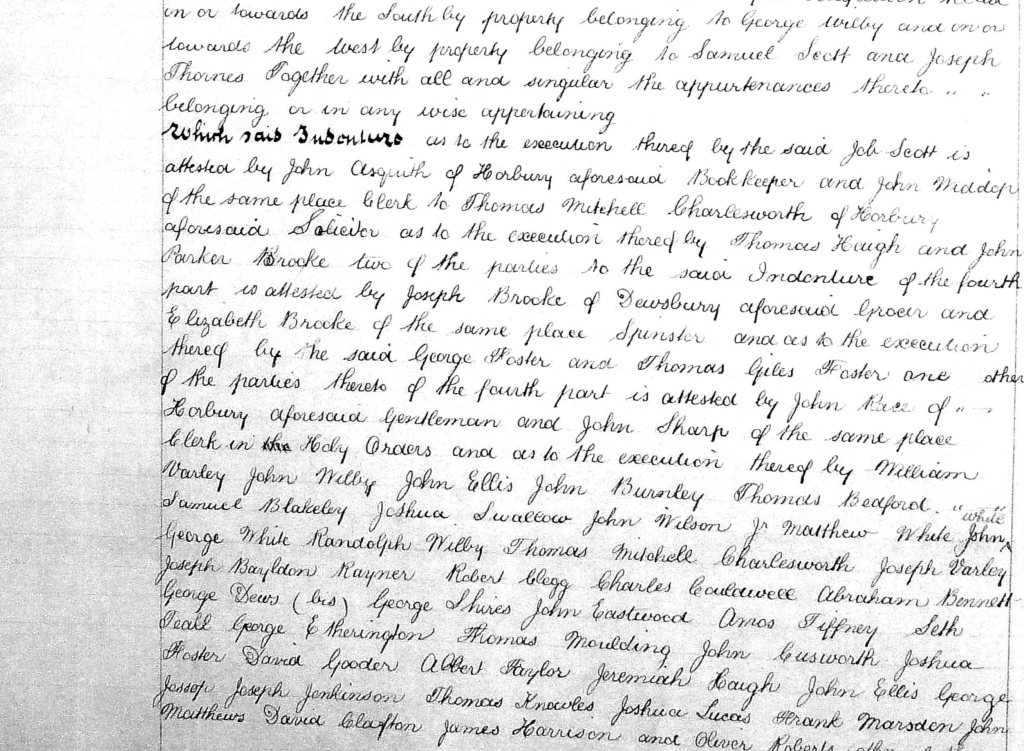 in or towards the South by property belonging to George Wilby and in or
towards the West by property belonging to Samuel Scott and Joseph
Thornes Together with all and singular the appurtenances thereto " "
belonging or in any wise appertaining
Which said Indenture as to the execution thereof by the said Job Scott is
attested by John Asquith of Horbury aforesaid Bookkeeper and John Widdop
of the same place Clerk to Thomas Mitchell Charlesworth of Horbury
aforesaid Solicitor as to the execution thereof by Thomas Haigh and John
Parker Brooke two of the parties to the said Indenture of the fourth
part is attested by Joseph Brooke of Dewsbury aforesaid Grocer and
Elizabeth Brooke of the same place Spinster and as to the execution
thereof by the said George Foster and Thomas Giles Foster one other
of the parties thereto of the fourth part is attested by John Race of "
Horbury aforesaid Gentleman and John Sharp of the same place
Clerk in the Holy Orders and as to the execution thereof by William
Varley John Wilby John Ellis John Burnley Thomas Bedford " "
Samuel Blakeley Joshua Swallow John Wilson Jr Matthew White John White
George White Randolph Wilby Thomas Mitchell Charlesworth Joseph Varley
Joseph Bayldon Rayner Robert Clegg Charles Couldwell Abraham Bennett
George Dews (bis) George Shires John Eastwood Amos Tiffney Seth
Teall George Etherington Thomas Moulding John Cusworth Joshua
Foster David Gooder Albert Taylor Jeremiah Haigh John Ellis George
Jessop Joseph Jenkinson Thomas Knowles Joshua Lucas Frank Marsden John
Matthews David Clafton James Harrison and Oliver Roberts